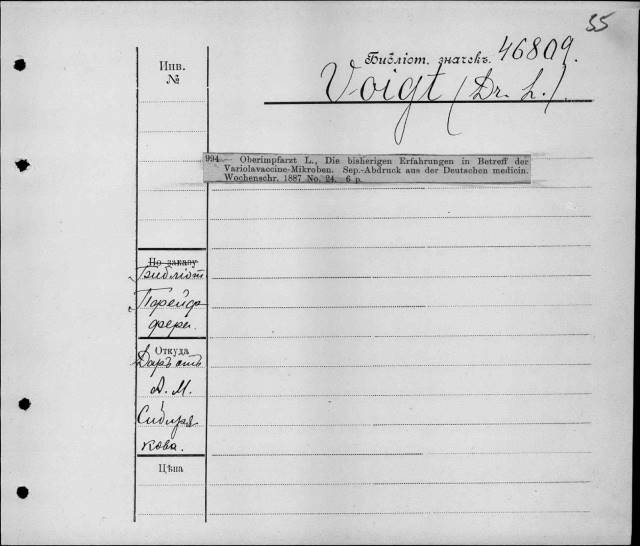 55
Инв.
№
Библіот. значекъ. 46809.
Voigt (Dr. L.)
994 — Oberimpfarzt L., Die bisherigen Erfahrungen in Betreff der
Variolavaccine-Mikroben. Sep.-Abdruck aus der Deutschen medicin.
Wochenschr. 1887 No. 24. 6 p.
По заказу
Библіот.
Пфейф
фера.
Откуда
Даръ отъ
А. М.
Сибиря
кова.
Цѣна